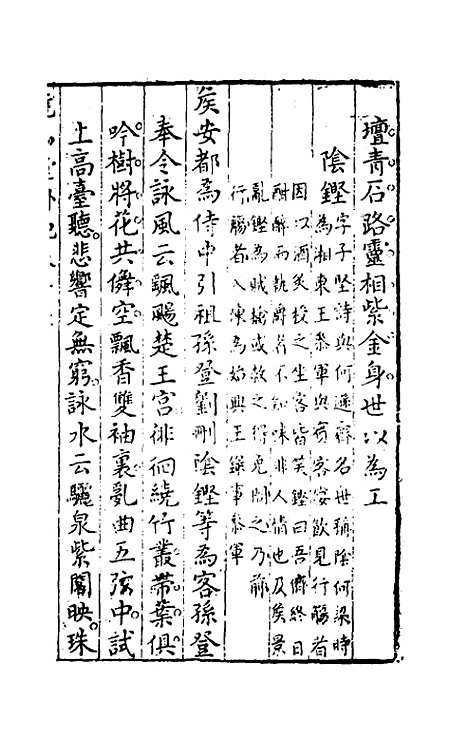 壇青石路靈相紫金身世以為工
陰鏗
字子堅詩與何遜齊名世稱陰何梁時
為湘東王叅軍與賓客宴飲見行觴者
因以酒炙授之坐客皆笑鏗曰吾儕終日
酣醉而執爵者不知味非人情也及侯景
亂鏗為賊擒或救之得免問之乃前
行觴者入陳為始興王錄事叅軍
侯安都為侍中引祖孫登劉刪陰鏗等為客孫登
奉令詠風云飄颺楚王宮徘徊繞竹叢帶葉俱
吟樹將花共儛空飄香雙袖裏亂曲五弦中試
上高臺聽悲響定無窮詠水云驪泉紫闕映珠